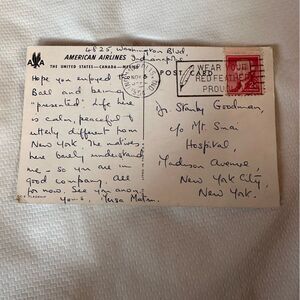 4825, Washington Blvd.
Indianapolis
AMERICAN AIRLINES
THE UNITED STATES—CANADA—MEXICO
POST CARD
WEAR YOUR
RED FEATHER
PROUDLY
Hope you enjoyed the
Ball and being
"presented". Life here
is calm, peaceful &
utterly different from
New York. The natives
here barely understand
me - so you are in
good company. All
for now. See you anon.
Yours,
Dr. Stanley Goodman,
c/o Mt. Sinai
Hospital,
Madison Avenue,
New York City,
New York.